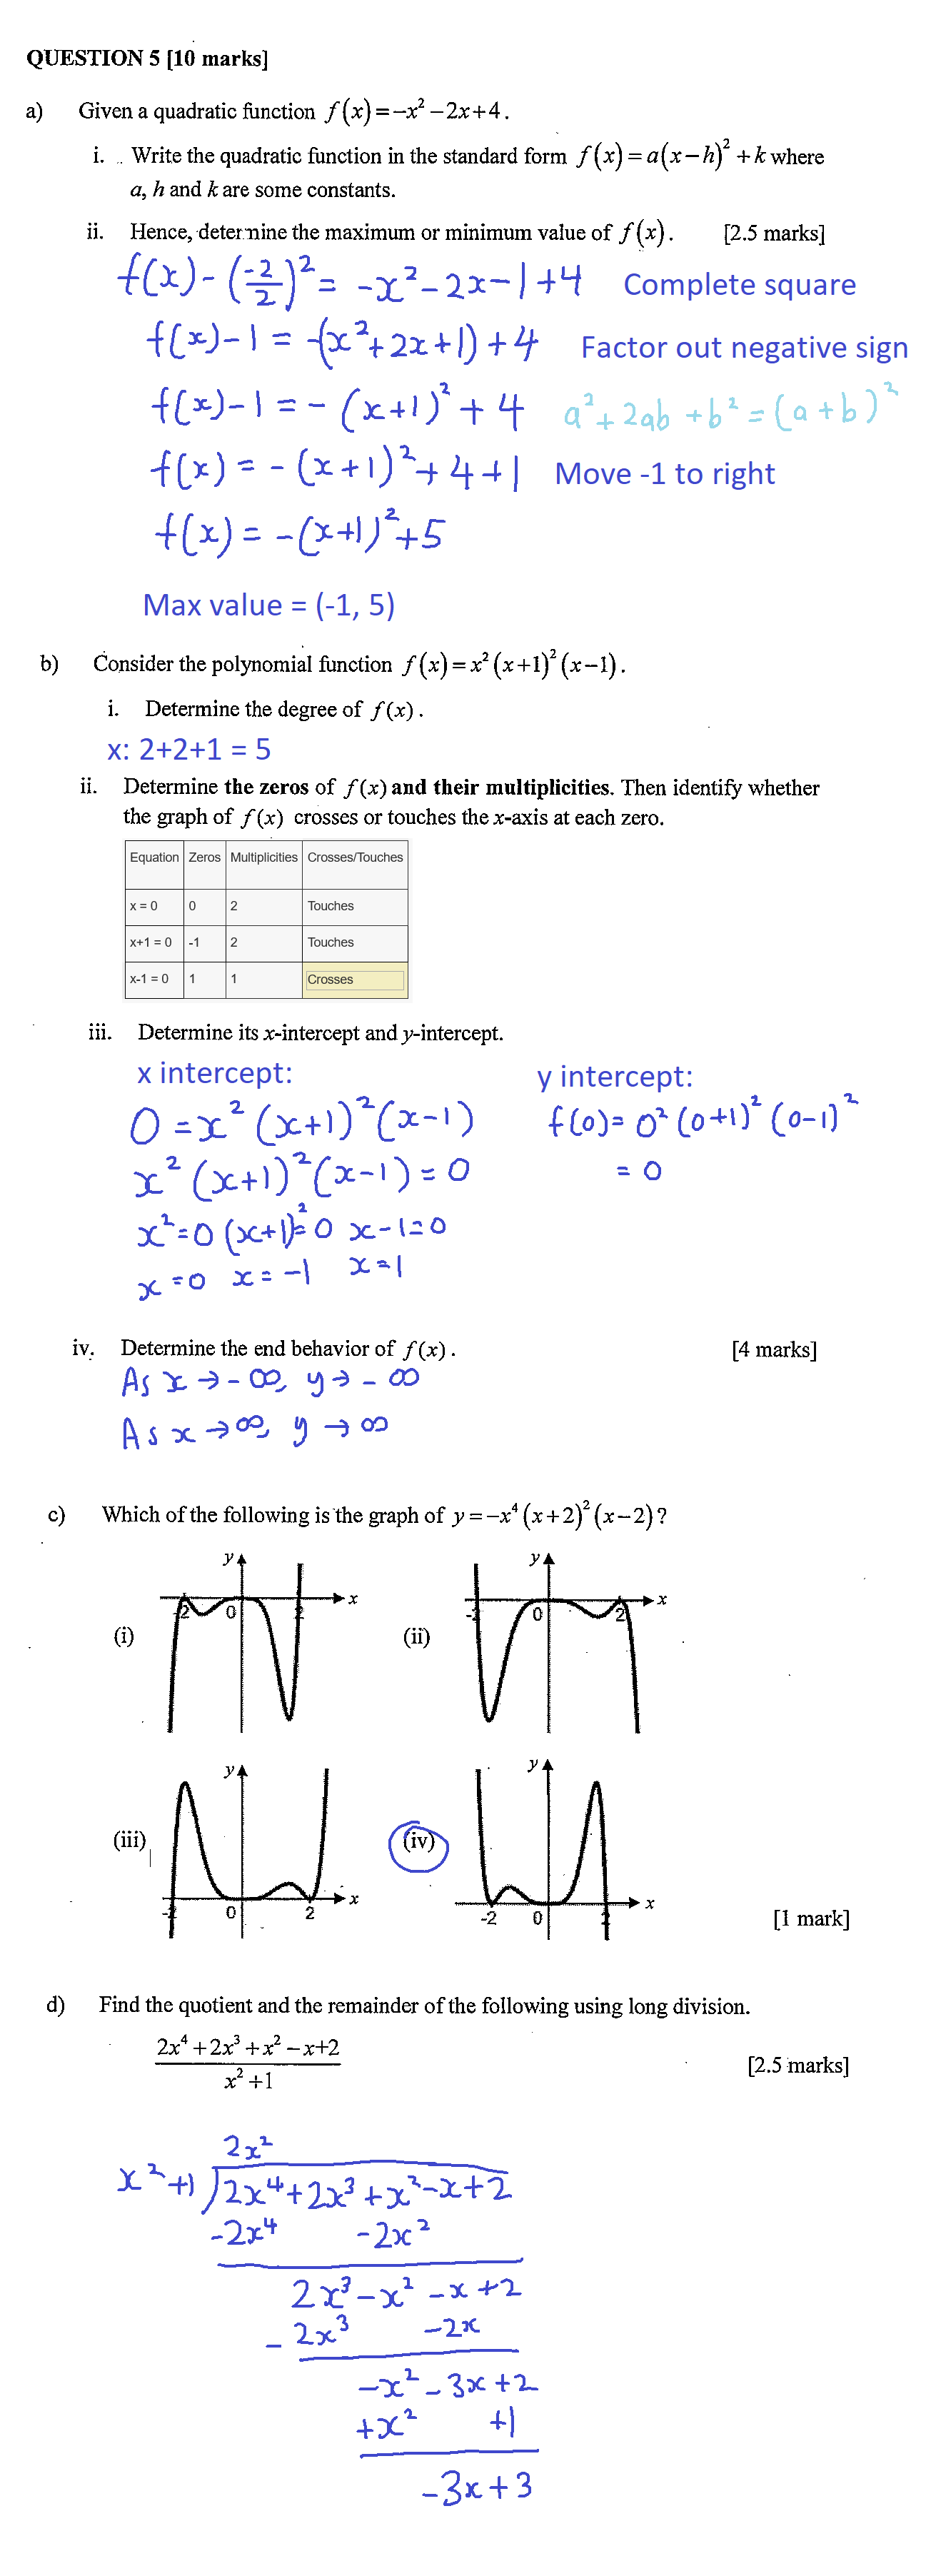 QUESTION 5 [10 marks]
a) Given a quadratic function f(x)=−x²−2x+4.
i. Write the quadratic function in the standard form f(x)=a(x−h)²+k where
a, h and k are some constants.
ii. Hence, determine the maximum or minimum value of f(x). [2.5 marks]
f(x)-(-2/2)²= -x²-2x-1+4 Complete square
f(x)-1 = -(x²+2x+1)+4 Factor out negative sign
f(x)-1 = -(x+1)²+4 a²+2ab+b²=(a+b)²
f(x) = -(x+1)²+4+1 Move -1 to right
f(x) = -(x+1)²+5
Max value = (-1, 5)
b) Consider the polynomial function f(x)=x²(x+1)²(x−1).
i. Determine the degree of f(x).
x: 2+2+1 = 5
ii. Determine the zeros of f(x) and their multiplicities. Then identify whether
the graph of f(x) crosses or touches the x-axis at each zero.
Equation Zeros Multiplicities Crosses/Touches
x = 0 0 2 Touches
x+1 = 0 -1 2 Touches
x-1 = 0 1 1 Crosses
iii. Determine its x-intercept and y-intercept.
x intercept: y intercept:
0 = x²(x+1)²(x-1) f(0)= 0²(0+1)²(0-1)²
x²(x+1)²(x-1) = 0 = 0
x²=0 (x+1)²=0 x-1=0
x=0 x=-1 x=1
iv. Determine the end behavior of f(x). [4 marks]
As x→-∞, y→-∞
As x→∞, y→∞
c) Which of the following is the graph of y=−x⁴(x+2)²(x−2)?
y y
-2 0 2 x -2 0 2 x
(i) (ii)
y y
(iii) (iv)
-2 0 2 x -2 0 2 x
[1 mark]
d) Find the quotient and the remainder of the following using long division.
2x⁴+2x³+x²−x+2
x²+1
[2.5 marks]
2x²
x²+1 2x⁴+2x³+x²-x+2
-2x⁴ -2x²
2x³-x²-x+2
-2x³ -2x
-x²-3x+2
+x² +1
-3x+3